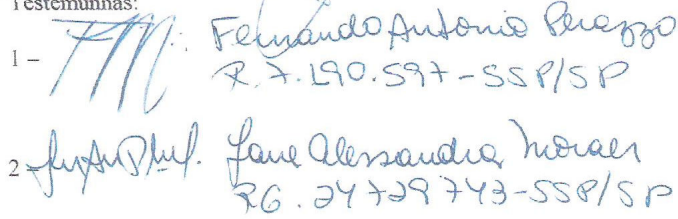 Testemunhas:
1 – Fernando Antonio Perazzo
R. 7.190.597-SSP/SP
2 – Jane Alessandra Moraes
RG. 24729743-SSP/SP